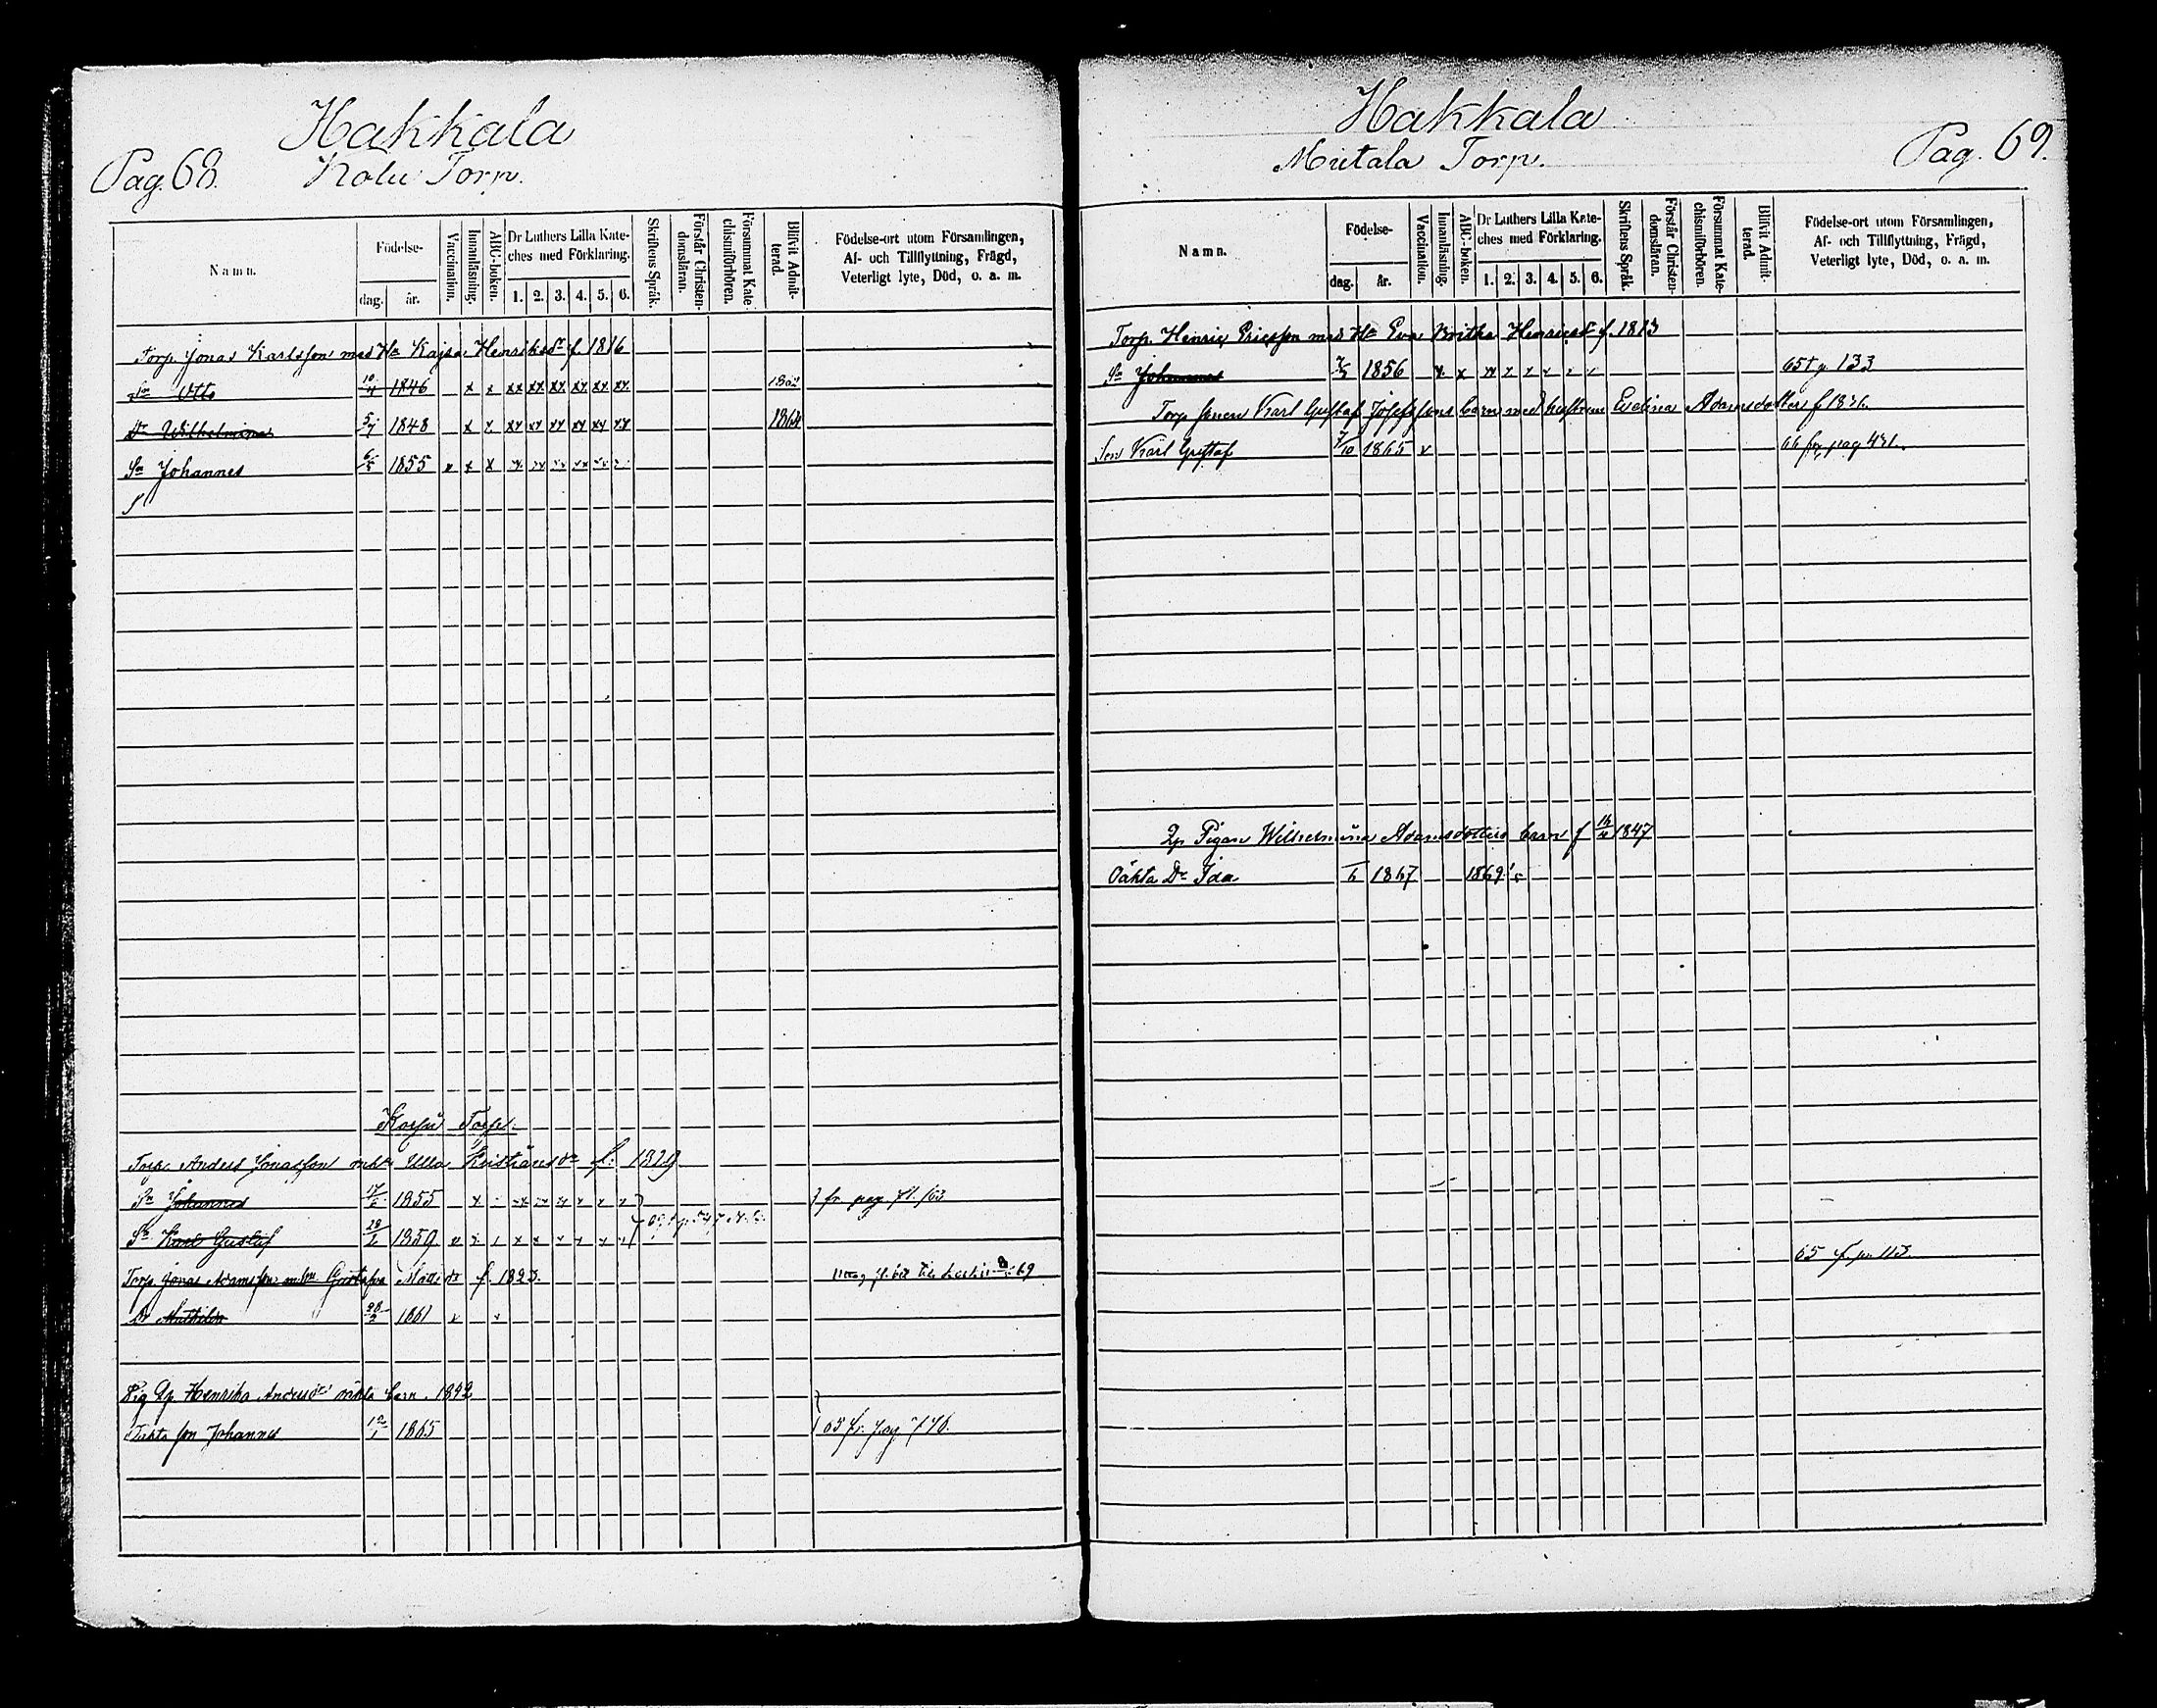 Hakkala
Pag. 68. Kolu Torp.
Namn.
Födelse-
dag. år.
Vaccination.
Innanläsning.
ABC-boken.
Dr Luthers Lilla Kateches med Förklaring.
1. 2. 3. 4. 5. 6.
Skriftens Språk.
Förstår Christendomsläran.
Försummat Katechismiförhören.
Blifvit Admitterad.
Födelse-ort utom Församlingen,
Af- och Tillflyttning, Frägd,
Veterligt lyte, Död, o. a. m.
Torp. Jonas Karlsson med Ha Kajsa Henriksdr f. 1816
Sn Otto 10/4 1846 x x xx xx xx xx xx xx
Dr Wilhelmina 5/7 1848 x x xx xx xx xx xx xx 1864
Sn Johannes 6/5 1855 x x x
Torp.
Torp. Anders Jonasson Ulla Kristiansdr f. 1829
Sn Johannes 17/6 1855 fr. pag. 71. /63
Sn Karl Gustaf 28/6 1859
Torp. Jonas Adamsson Gustafva Mattsdr f. 1823.
Dr Mathilda 28/2 1861
Pig Henrika Andersdr oäkta barn 1842
Oäkta son Johannes 12/1 1865 65 fr. pag 746.
Hakkala
Mutala Torp. Pag. 69.
Namn.
Födelse-
dag. år.
Vaccination.
Innanläsning.
ABC-boken.
Dr Luthers Lilla Kateches med Förklaring.
1. 2. 3. 4. 5. 6.
Skriftens Språk.
Förstår Christendomsläran.
Försummat Katechismiförhören.
Blifvit Admitterad.
Födelse-ort utom Församlingen,
Af- och Tillflyttning, Frägd,
Veterligt lyte, Död, o. a. m.
Torp. Henric Ericsson med Ha Eva Britha Henricsdr f. 1813
Sn Johannes 1856 65 t p. 133
Torp sonen Karl Gustaf Josefssons barn med hustrun Evelina Adamsdotter f
Son Karl Gustaf 7/10 1865 x 66 fr. pag 431.
Pigan Wilhelmina Adamsdotters barn f 1847
Oäkta Dr Ida 6 1867 1869
65 f. p. 113.